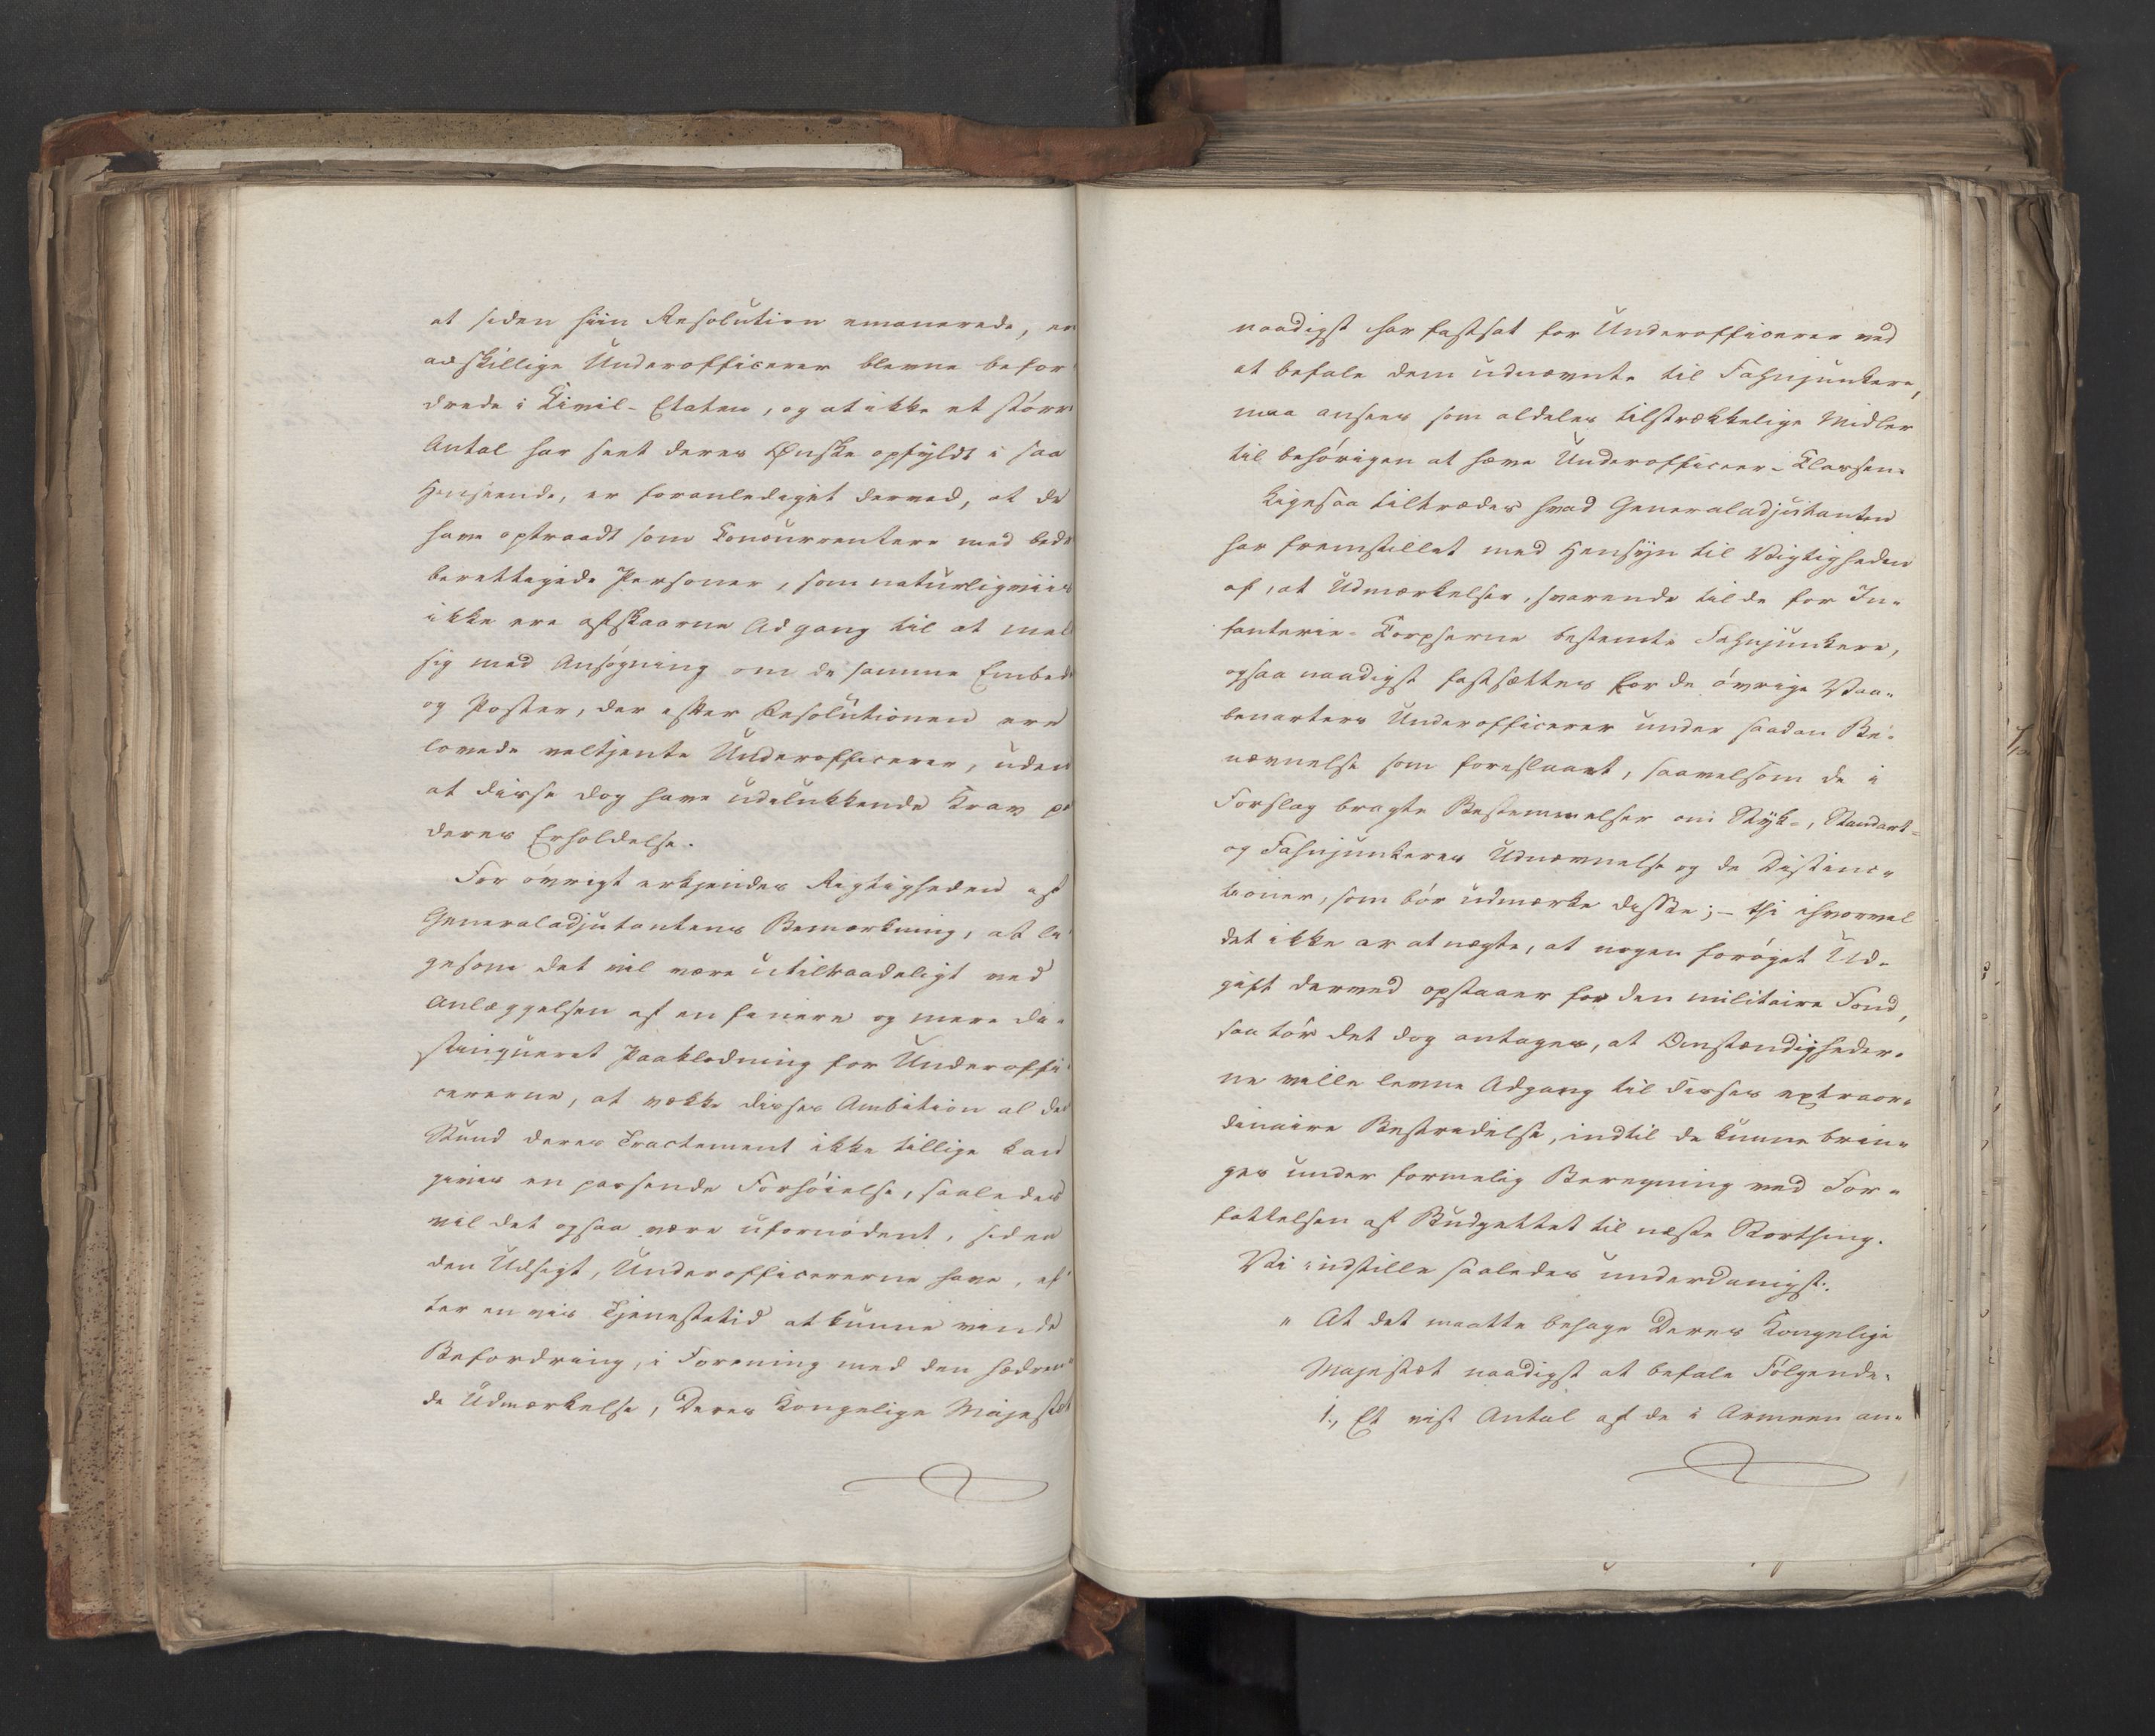 at siden hiin Resolution emanerede, er
adskillige Underofficerer blevne befor-
drede i Civil-Etaten, og at ikke et større
Antal har seet deres Ønske opfyldt i saa
Henseende, er foranlediget derved, at de
have optraadt som Concurrentere med bedre
berettigede Personer, som naturligviis
ikke ere afskaarne Adgang til at melde
sig med Ansøgning om de samme Embeder
og Poster, der efter Resolutionen ere
lovede veltjente Underofficerer, uden
at disse dog have udelukkende Krav paa
deres Erholdelse.
For øvrigt erkjendes Rigtigheden af
Generaladjutantens Bemærkning, at li-
gesom det vil være utilraadeligt ved
Anlæggelsen af en finere og mere di-
stinqueret Paaklædning for Underoffi-
cererne, at vække disses Ambition al den
Stund deres Tractement ikke tillige kan
gives en passende Forhøielse, saaledes
vil det ogsaa være ufornødent, siden
den Udsigt, Underofficererne have, ef-
ter en vis Tjenestetid at kunne vinde
Befordring, i Forening med den hædren-
de Udmærkelse, Deres Kongelige Majestæt
naadigst har fastsat for Underofficerer ved
at befale dem udnævnte til Fahnjunkere,
maa ansees som aldeles tilstrækkelige Midler
til behørigen at hæve Underofficeer-Classen.
Ligesaa tiltrædes hvad Generaladjutanten
har fremstillet med Hensyn til Vigtigheden
af, at Udmærkelser, svarende til de for In-
fanterie-Corpserne bestemte Fahnjunkere,
ogsaa naadigst fastsættes for de øvrige Vaa-
benarters Underofficerer under saadan Be-
nævnelse som foreslaaet, saavelsom de i
Forslag bragte Bestemmelser om Styk-, Standart-
og Fahnjunkeres Udnævnelse og de Distinc-
tioner, som bør udmærke disse; - thi ihvorvel
det ikke er at negte, at nogen forøget Ud-
gift derved opstaaer for den militaire Fond,
saa tør det dog antages, at Omstændigheder-
ne ville levne Adgang til disses extraor-
dinaire Bestridelse, indtil de kunne brin-
ges under formelig Beregning ved For-
fattelsen af Budgettet til næste Storthing.
Vi indstille saaledes underdanigst:
" At det maatte behage Deres Kongelige
Majestæt naadigst at befale Følgende:
1., Et vist Antal af de i Armeen an-